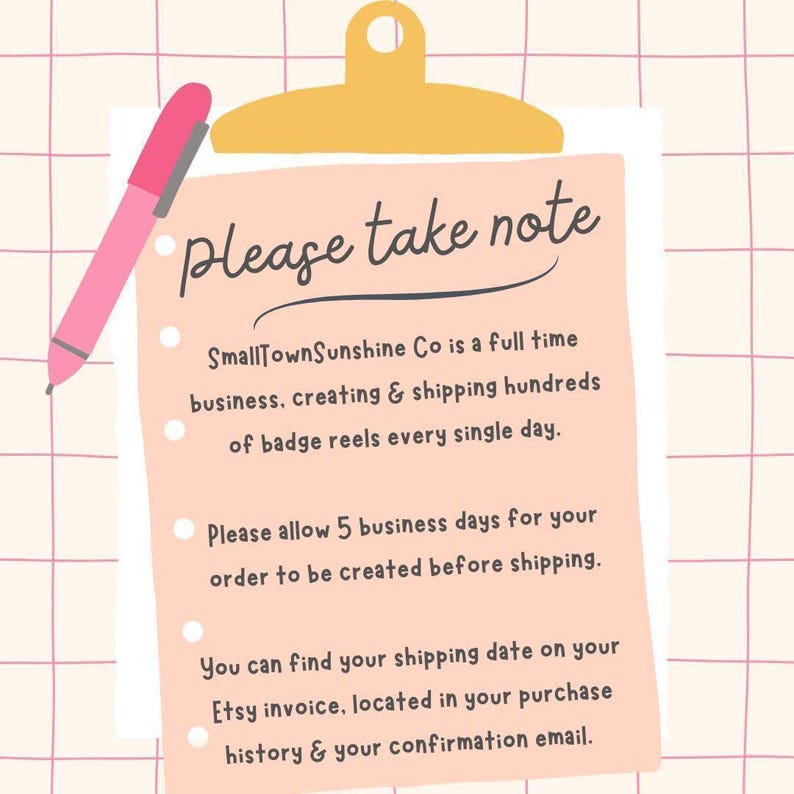 please take note
SmallTownSunshine Co is a full time
business, creating & shipping hundreds
of badge reels every single day.
Please allow 5 business days for your
order to be created before shipping.
You can find your shipping date on your
Etsy invoice, located in your purchase
history & your confirmation email.